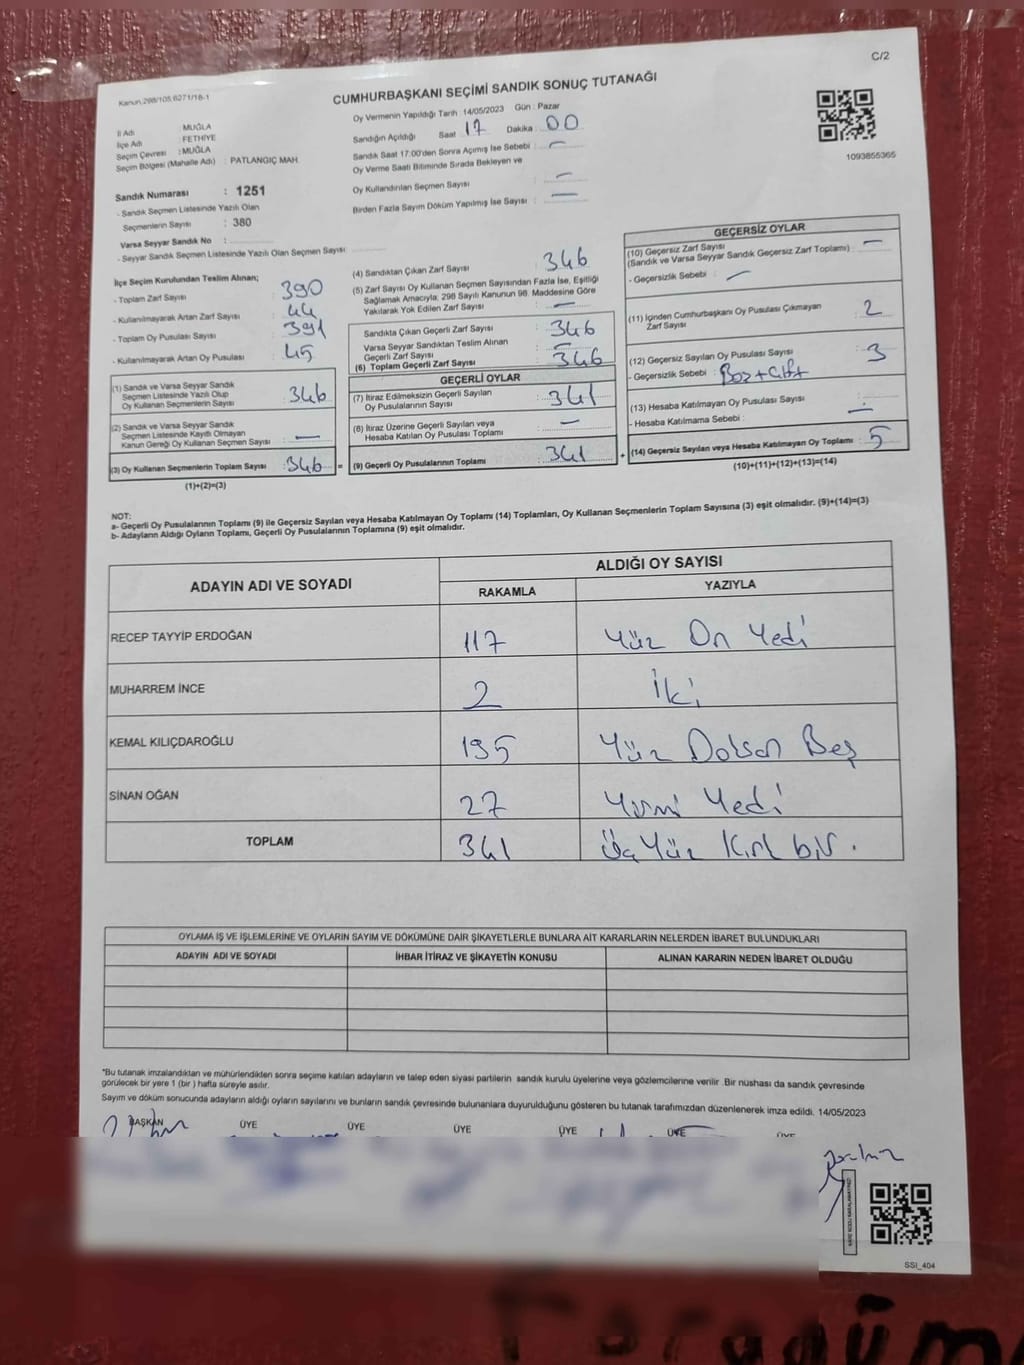 C/2
Kanun,298/105,6271/18-1
CUMHURBAŞKANI SEÇİMİ SANDIK SONUÇ TUTANAĞI
İl Adı : MUĞLA
İlçe Adı : FETHİYE
Seçim Çevresi : MUĞLA
Seçim Bölgesi (Mahalle Adı) : PATLANGIÇ MAH.
Sandık Numarası : 1251
- Sandık Seçmen Listesinde Yazılı Olan
Seçmenlerin Sayısı : 380
Varsa Seyyar Sandık No :
- Seyyar Sandık Seçmen Listesinde Yazılı Olan Seçmen Sayısı :
Oy Vermenin Yapıldığı Tarih 14/05/2023 Gün : Pazar
Sandığın Açıldığı Saat : 17 Dakika : 00
Sandık Saat 17:00'den Sonra Açımış İse Sebebi : —
Oy Verme Saati Bitiminde Sırada Bekleyen ve
Oy Kullandırılan Seçmen Sayısı : —
Birden Fazla Sayım Döküm Yapılmış İse Sayısı : —
1093855365
İlçe Seçim Kurulundan Teslim Alınan;
- Toplam Zarf Sayısı : 390
- Kullanılmayarak Artan Zarf Sayısı : 44
- Toplam Oy Pusulası Sayısı : 391
- Kullanılmayarak Artan Oy Pusulası : 45
(1) Sandık ve Varsa Seyyar Sandık
Seçmen Listesinde Yazılı Olup
Oy Kullanan Seçmenlerin Sayısı : 346
(2) Sandık ve Varsa Seyyar Sandık
Seçmen Listesinde Kayıtlı Olmayan
Kanun Gereği Oy Kullanan Seçmen Sayısı : —
(3) Oy Kullanan Seçmenlerin Toplam Sayısı : 346 =
(1)+(2)=(3)
(4) Sandıktan Çıkan Zarf Sayısı : 346
(5) Zarf Sayısı Oy Kullanan Seçmen Sayısından Fazla İse, Eşitliği
Sağlamak Amacıyla; 298 Sayılı Kanunun 98. Maddesine Göre
Yakılarak Yok Edilen Zarf Sayısı : —
Sandıkta Çıkan Geçerli Zarf Sayısı : 346
Varsa Seyyar Sandıktan Teslim Alınan
Geçerli Zarf Sayısı : —
(6) Toplam Geçerli Zarf Sayısı : 346
GEÇERLİ OYLAR
(7) İtiraz Edilmeksizin Geçerli Sayılan
Oy Pusulalarının Sayısı : 341
(8) İtiraz Üzerine Geçerli Sayılan veya
Hesaba Katılan Oy Pusulası Toplamı : —
(9) Geçerli Oy Pusulalarının Toplamı : 341 +
GEÇERSİZ OYLAR
(10) Geçersiz Zarf Sayısı : —
(Sandık ve Varsa Seyyar Sandık Geçersiz Zarf Toplamı)
- Geçersizlik Sebebi : —
(11) İçinden Cumhurbaşkanı Oy Pusulası Çıkmayan
Zarf Sayısı : 2
(12) Geçersiz Sayılan Oy Pusulası Sayısı : 3
- Geçersizlik Sebebi : Boş+Çift
(13) Hesaba Katılmayan Oy Pusulası Sayısı : —
- Hesaba Katılmama Sebebi :
(14) Geçersiz Sayılan veya Hesaba Katılmayan Oy Toplamı : 5
(10)+(11)+(12)+(13)=(14)
NOT:
a- Geçerli Oy Pusulalarının Toplamı (9) ile Geçersiz Sayılan veya Hesaba Katılmayan Oy Toplamı (14) Toplamları, Oy Kullanan Seçmenlerin Toplam Sayısına (3) eşit olmalıdır. (9)+(14)=(3)
b- Adayların Aldığı Oyların Toplamı, Geçerli Oy Pusulalarının Toplamına (9) eşit olmalıdır.
ADAYIN ADI VE SOYADI ALDIĞI OY SAYISI
RAKAMLA YAZIYLA
RECEP TAYYİP ERDOĞAN 117 Yüz On Yedi
MUHARREM İNCE 2 İki
KEMAL KILIÇDAROĞLU 195 Yüz Doksan Beş
SİNAN OĞAN 27 Yirmi Yedi
TOPLAM 341 Üç Yüz Kırk bir.
OYLAMA İŞ VE İŞLEMLERİNE VE OYLARIN SAYIM VE DÖKÜMÜNE DAİR ŞİKAYETLERLE BUNLARA AİT KARARLARIN NELERDEN İBARET BULUNDUKLARI
ADAYIN ADI VE SOYADI İHBAR İTİRAZ VE ŞİKAYETİN KONUSU ALINAN KARARIN NEDEN İBARET OLDUĞU
*Bu tutanak imzalandıktan ve mühürlendikten sonra seçime katılan adayların ve talep eden siyasi partilerin sandık kurulu üyelerine veya gözlemcilerine verilir .Bir nüshası da sandık çevresinde
görülecek bir yere 1 (bir ) hafta süreyle asılır.
Sayım ve döküm sonucunda adayların aldığı oyların sayılarını ve bunların sandık çevresinde bulunanlara duyurulduğunu gösteren bu tutanak tarafımızdan düzenlenerek imza edildi. 14/05/2023
BAŞKAN ÜYE ÜYE ÜYE ÜYE ÜYE ÜYE
SSI_404